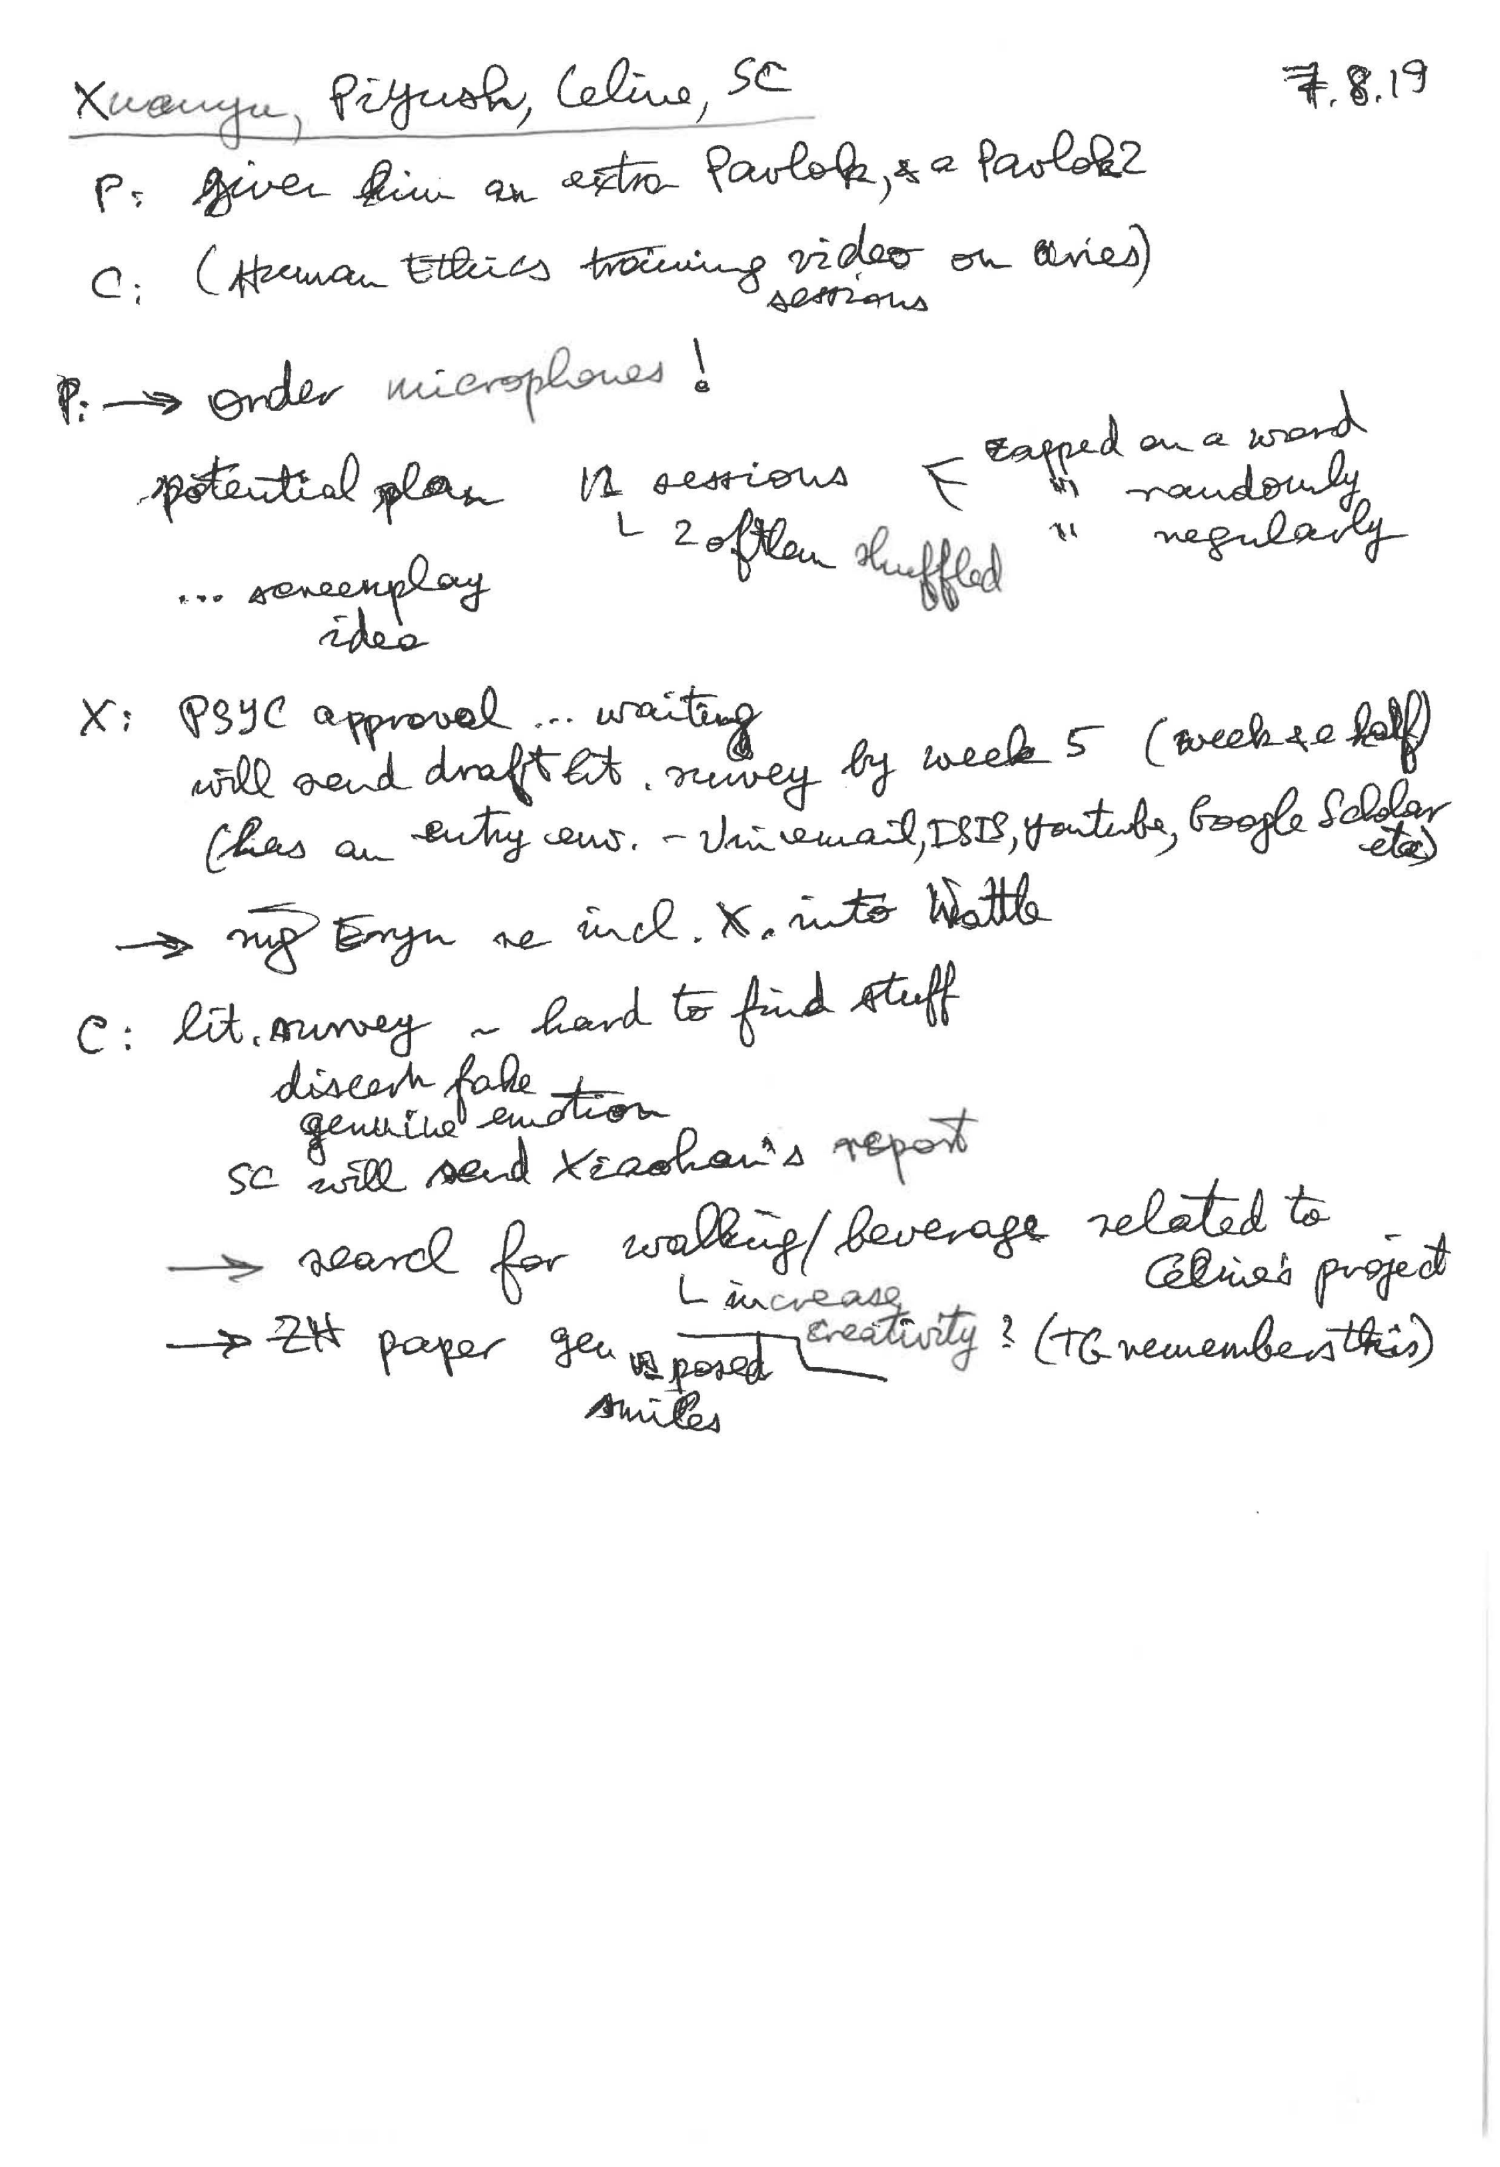 Xuanyu, Piyush, Celine, SC 7.8.19
P: given him an extra Pavlok, & a Pavlok2
C: (Human Ethics training video on aries)
sessions
P: → order microphones!
potential plan 12 sessions < zapped on a word
" randomly
└ 2 of them shuffled " regularly
... screenplay
idea
X: PSYC approval ... waiting
will send draft lit. survey by week 5 (week & a half)
(has an entry env. - Uni email, ISIS, youtube, Google Scholar
etc)
→ msg Eryn re incl. X. into Wattle
C: lit. survey ~ hard to find stuff
discern fake
genuine emotion
SC will send Xiaohan's report
→ search for walking/beverage related to
Celine's project
└ increase
creativity? (TG remembers this)
→ ZH paper gen vs posed
smiles